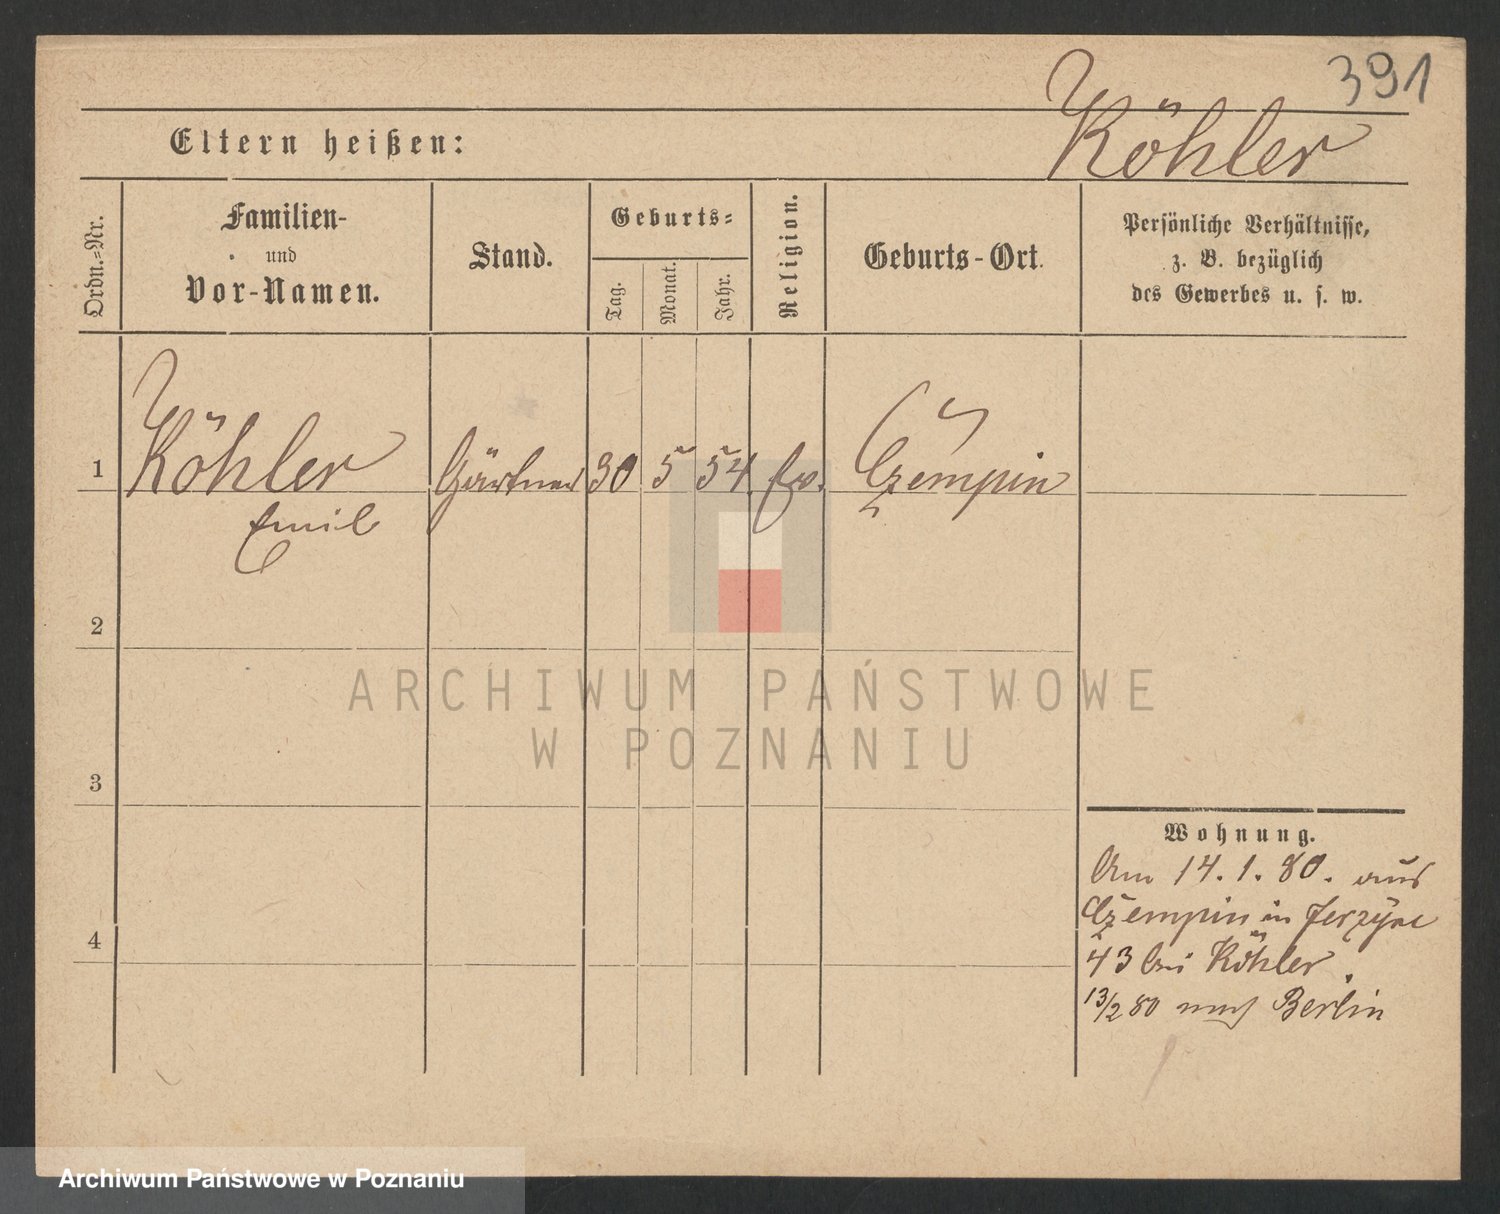 391
Köhler
Eltern heißen:
Ordn.-Nr.
Familien-
und
Vor-Namen.
Stand.
Geburts-
Tag.
Monat.
Jahr.
Religion.
Geburts-Ort.
Persönliche Verhältnisse,
z. B. bezüglich
des Gewerbes u. s. w.
1 Köhler Gärtner 30 5 54 Ev. Czempin
Emil
2
3
4
Wohnung.
Am 14.1.80. aus
Czempin in Jerzyce
43 bei Köhler.
13/2 80 nach Berlin
ARCHIWUM PAŃSTWOWE
W POZNANIU
Archiwum Państwowe w Poznaniu